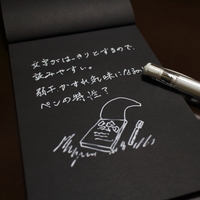 文字がはっきりとするので、
読みやすい。
若干かすれ気味になるのは
ペンの特徴？